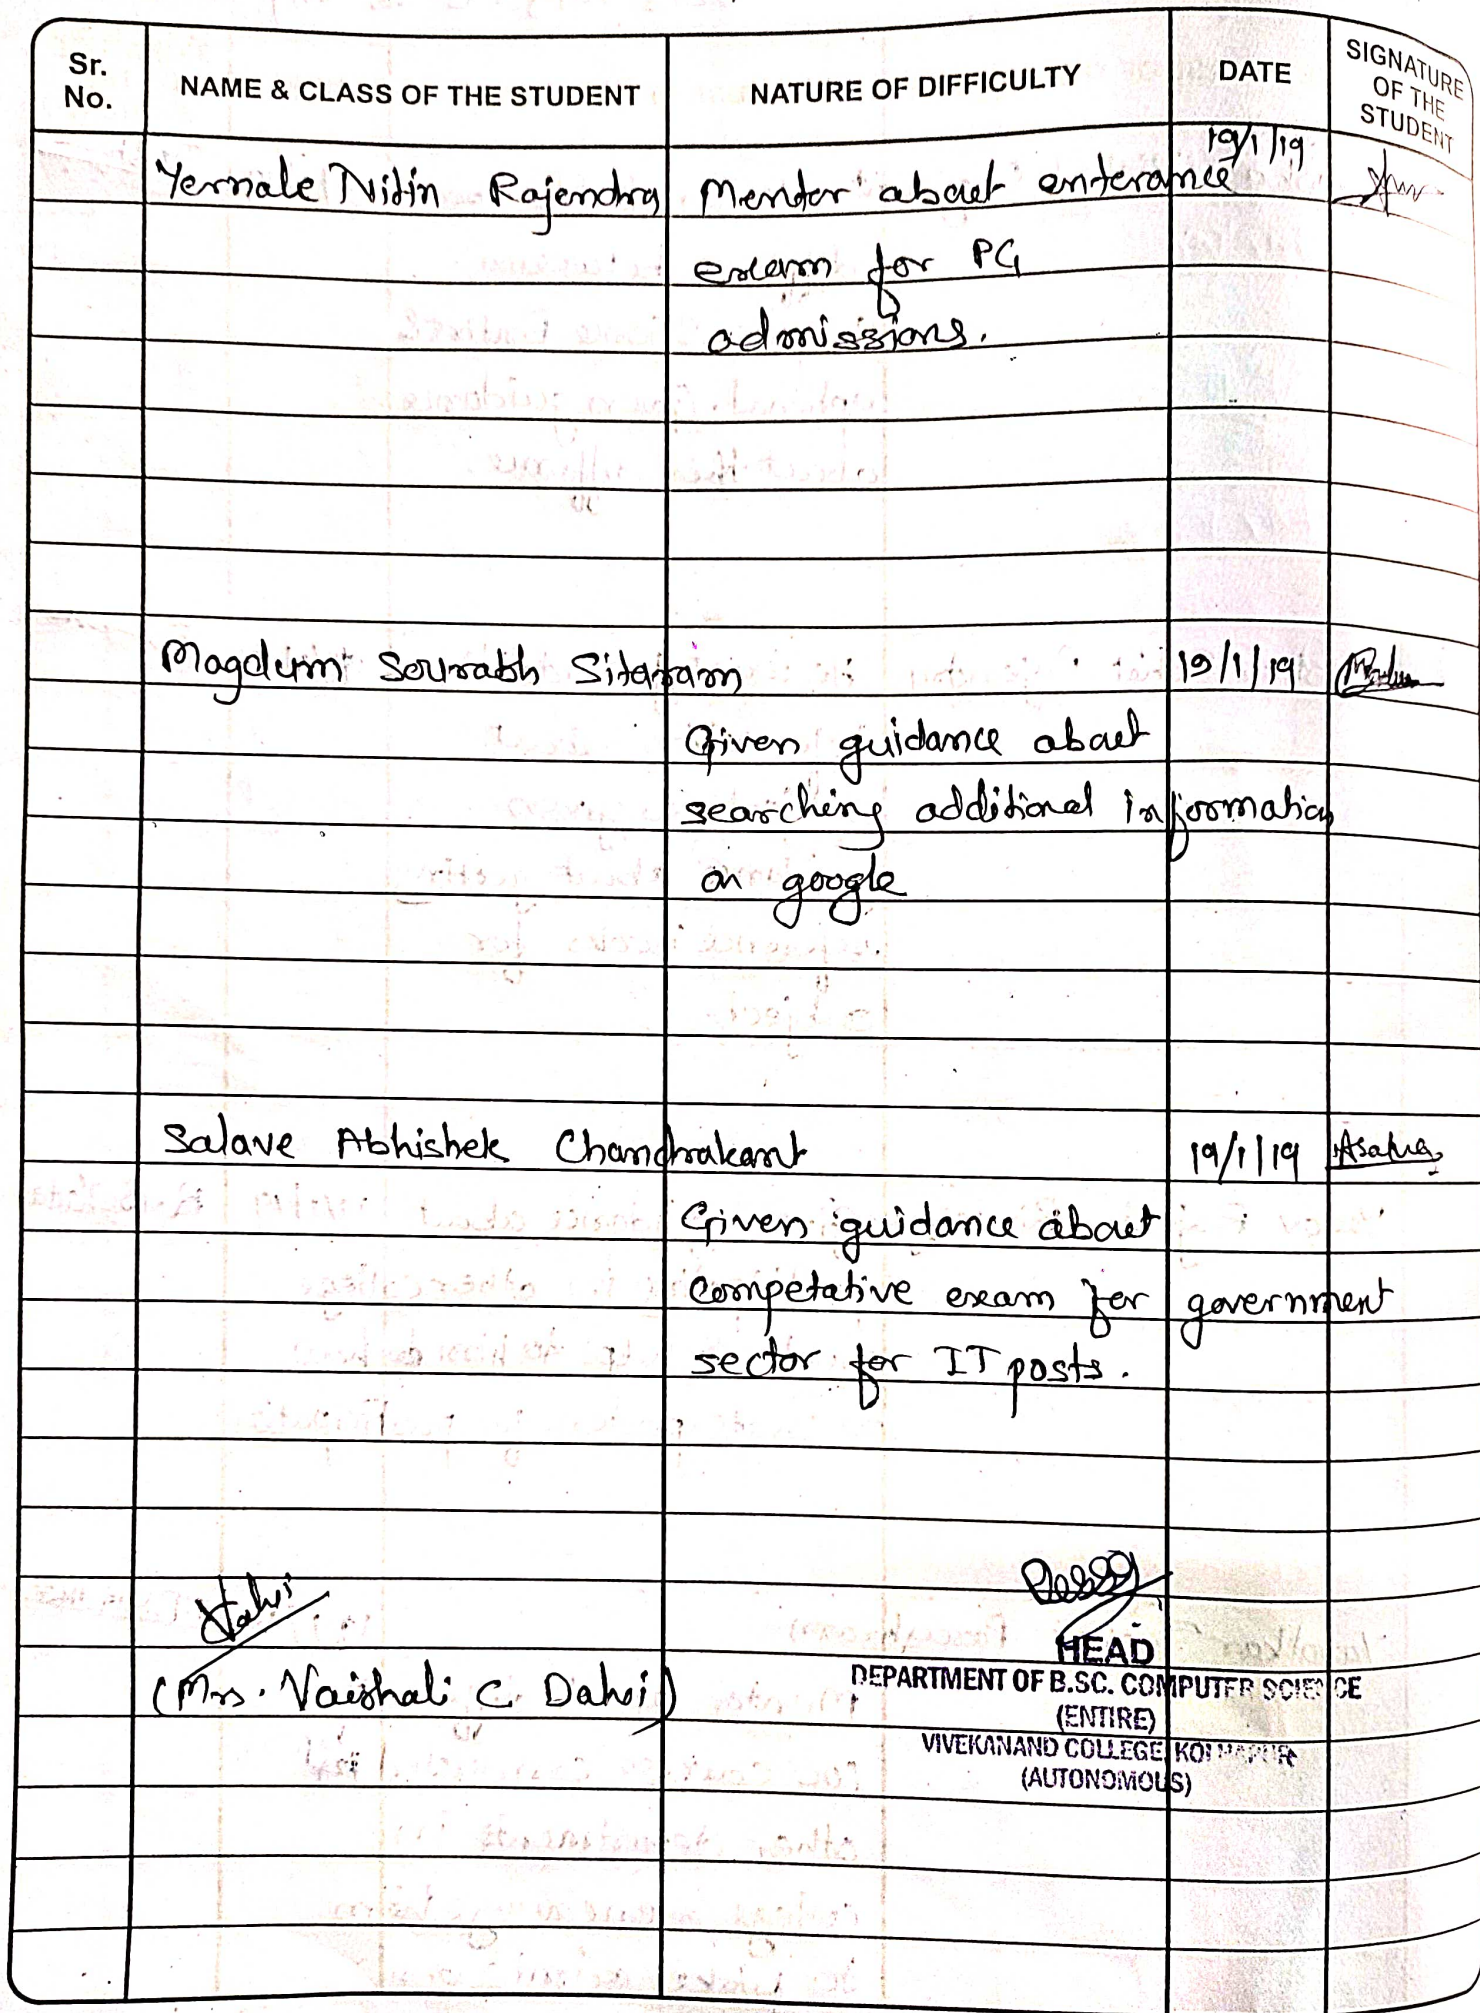 Sr. No.
NAME & CLASS OF THE STUDENT
NATURE OF DIFFICULTY
DATE
SIGNATURE OF THE STUDENT
19/1/19
Yernale Nitin Rajendra Mentor about enterance
exam for PG
admissions.
Magdum Sourabh Sitaram 19/1/19
Given guidance about
searching additional information
on google
Salave Abhishek Chandrakant 19/1/19
Given guidance about
competative exam for government
sector for IT posts.
(Mrs. Vaishali C. Dalvi)
HEAD
DEPARTMENT OF B.SC. COMPUTER SCIENCE
(ENTIRE)
VIVEKANAND COLLEGE, KOLHAPUR
(AUTONOMOUS)